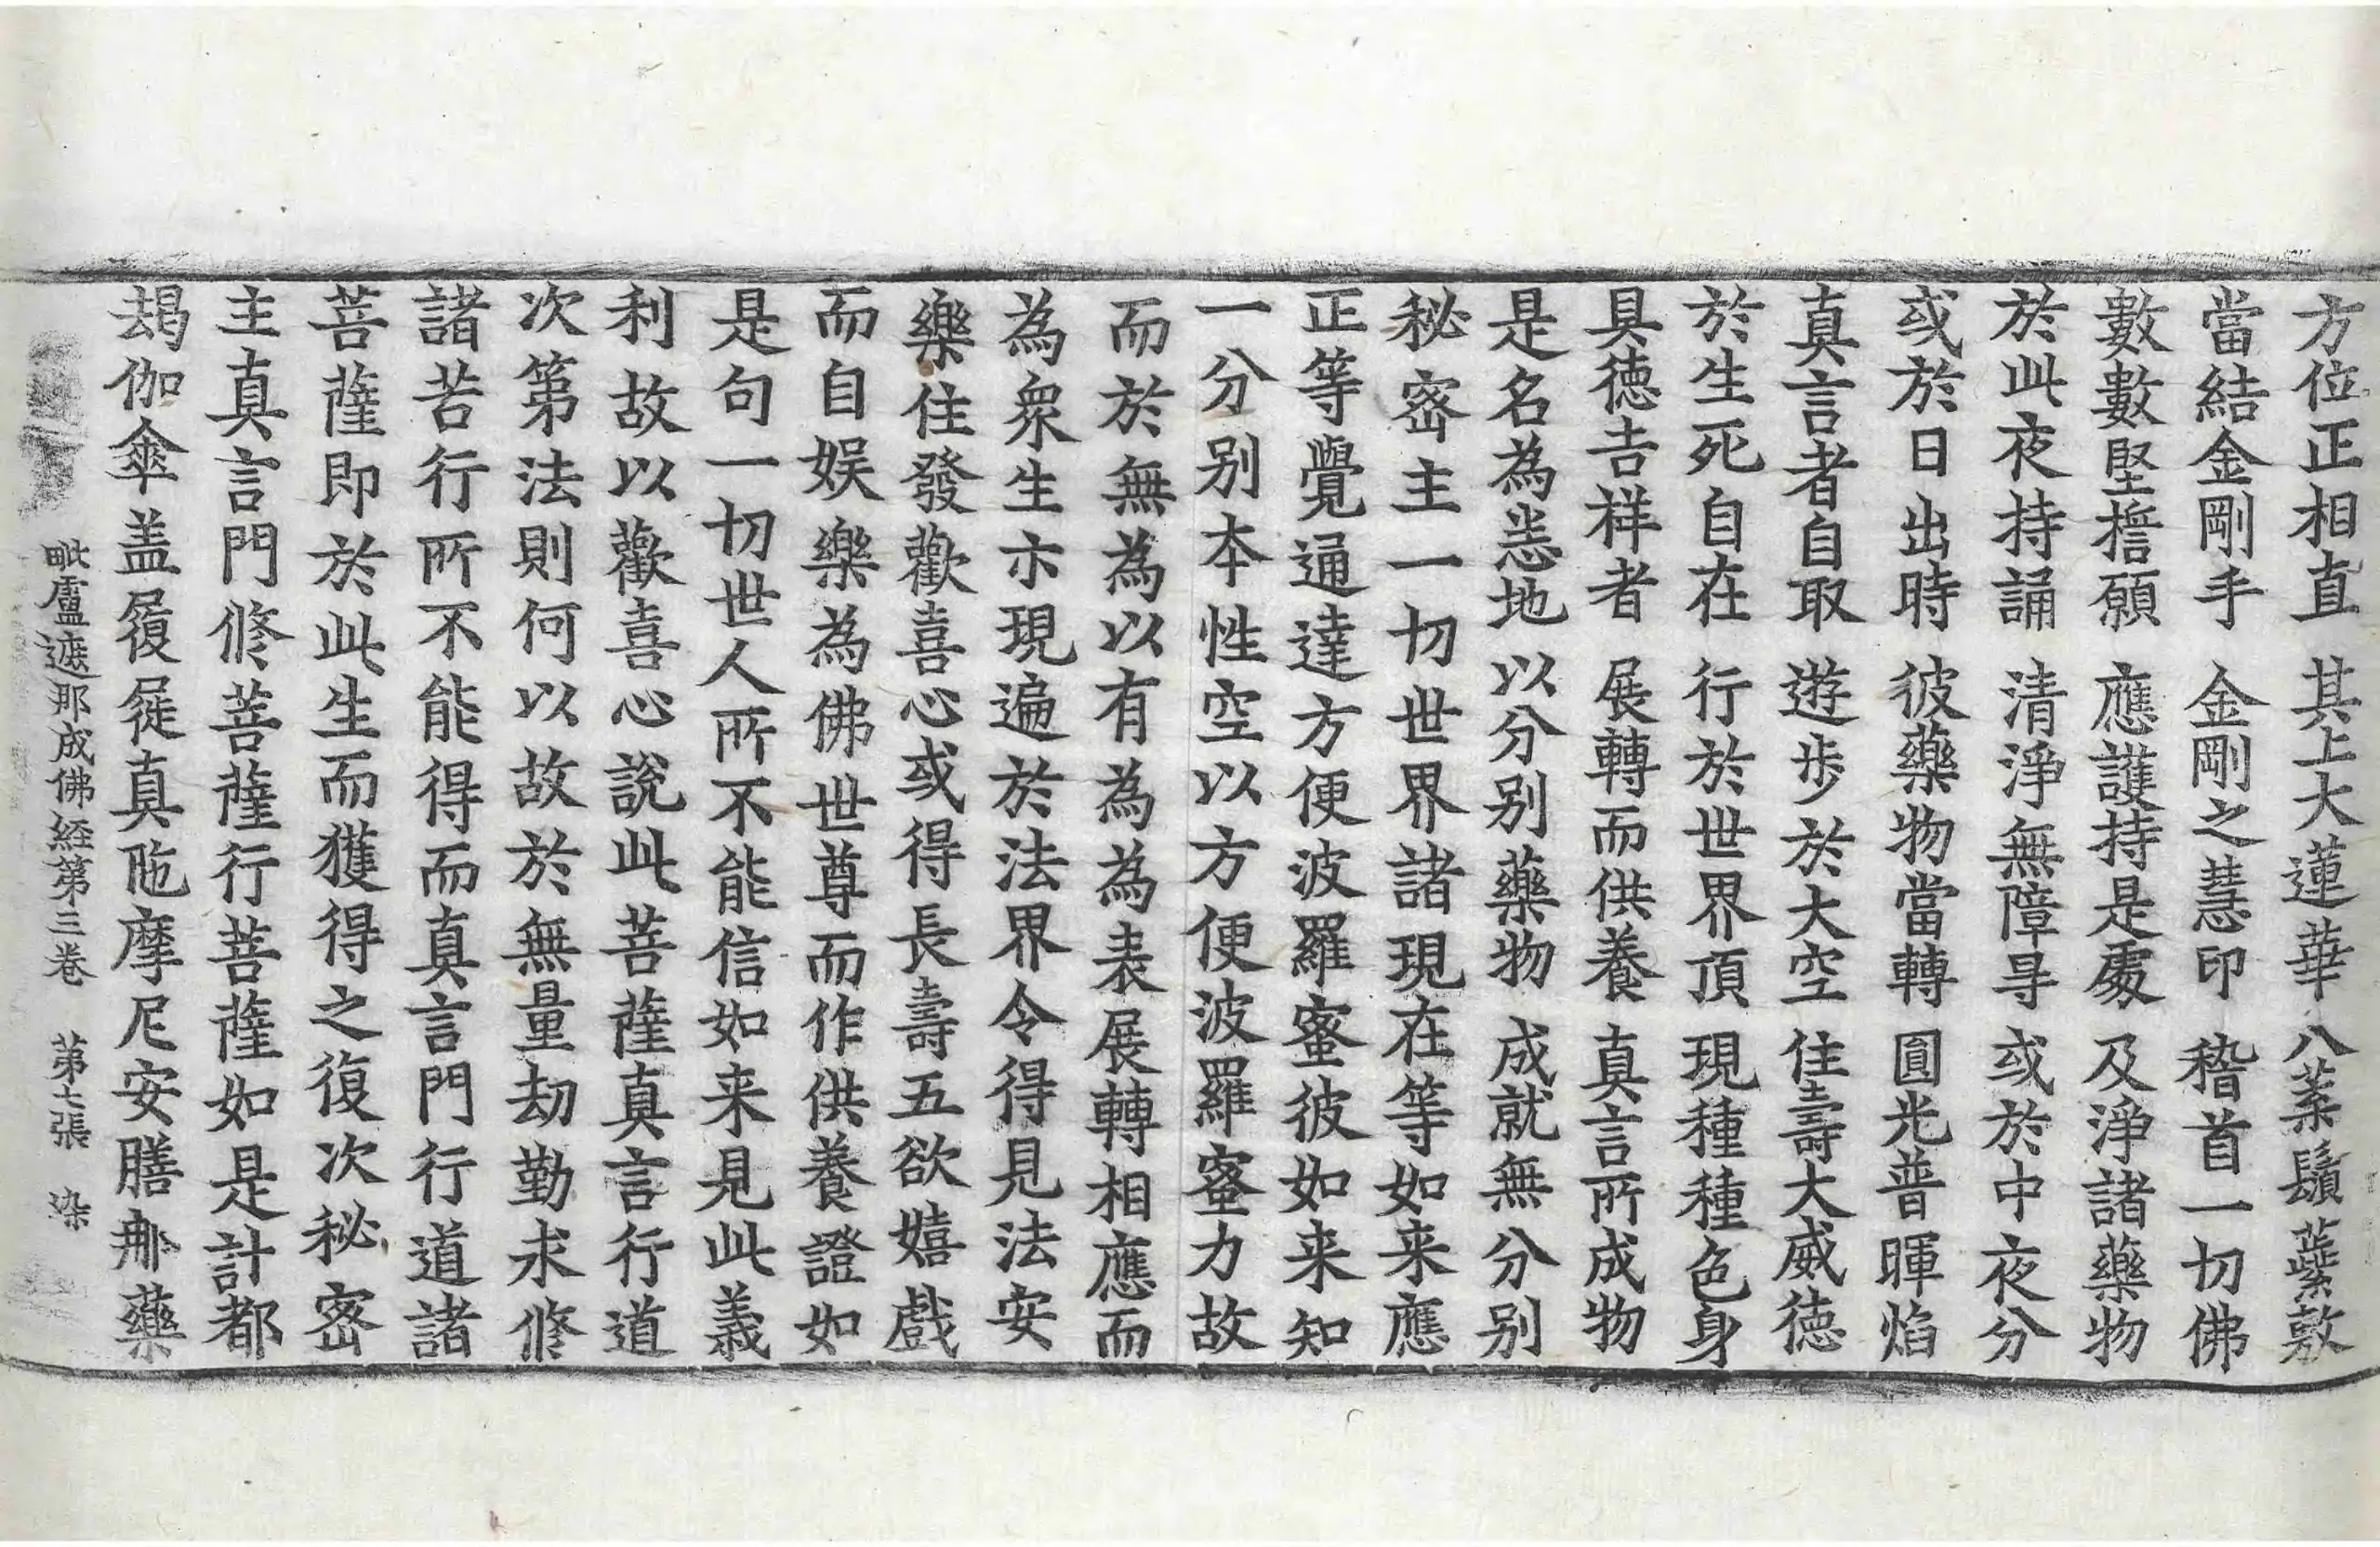 方位正相直　其上大蓮華　八葉鬚蘂敷
當結金剛手　金剛之慧印　稽首一切佛
數數堅擔願　應護持是處　及淨諸藥物
於此夜持誦　清淨無障㝵　或於中夜分
或於日出時　彼藥物當轉　圓光普暉焰
真言者自取　遊步於大空　住壽大威德
於生死自在　行於世界頂　現種種色身
具德吉祥者　展轉而供養　真言所成物
是名為悉地　以分別藥物　成就無分別
秘密主一切世界諸現在等如来應
正等覺通達方便波羅蜜彼如来知
一分別本性空以方便波羅蜜力故
而於無為以有為為表展轉相應而
為眾生示現遍於法界令得見法安
樂住發歡喜心或得長壽五欲嬉戲
而自娛樂為佛世尊而作供養證如
是句一切世人所不能信如来見此義
利故以歡喜心說此菩薩真言行道
次第法則何以故於無量劫勤求修
諸苦行所不能得而真言門行道諸
菩薩即於此生而獲得之復次秘密
主真言門修菩薩行菩薩如是計都
朅伽傘盖履屣真陁摩尼安膳那藥
毗盧遮那成佛経第三卷　第七張　染